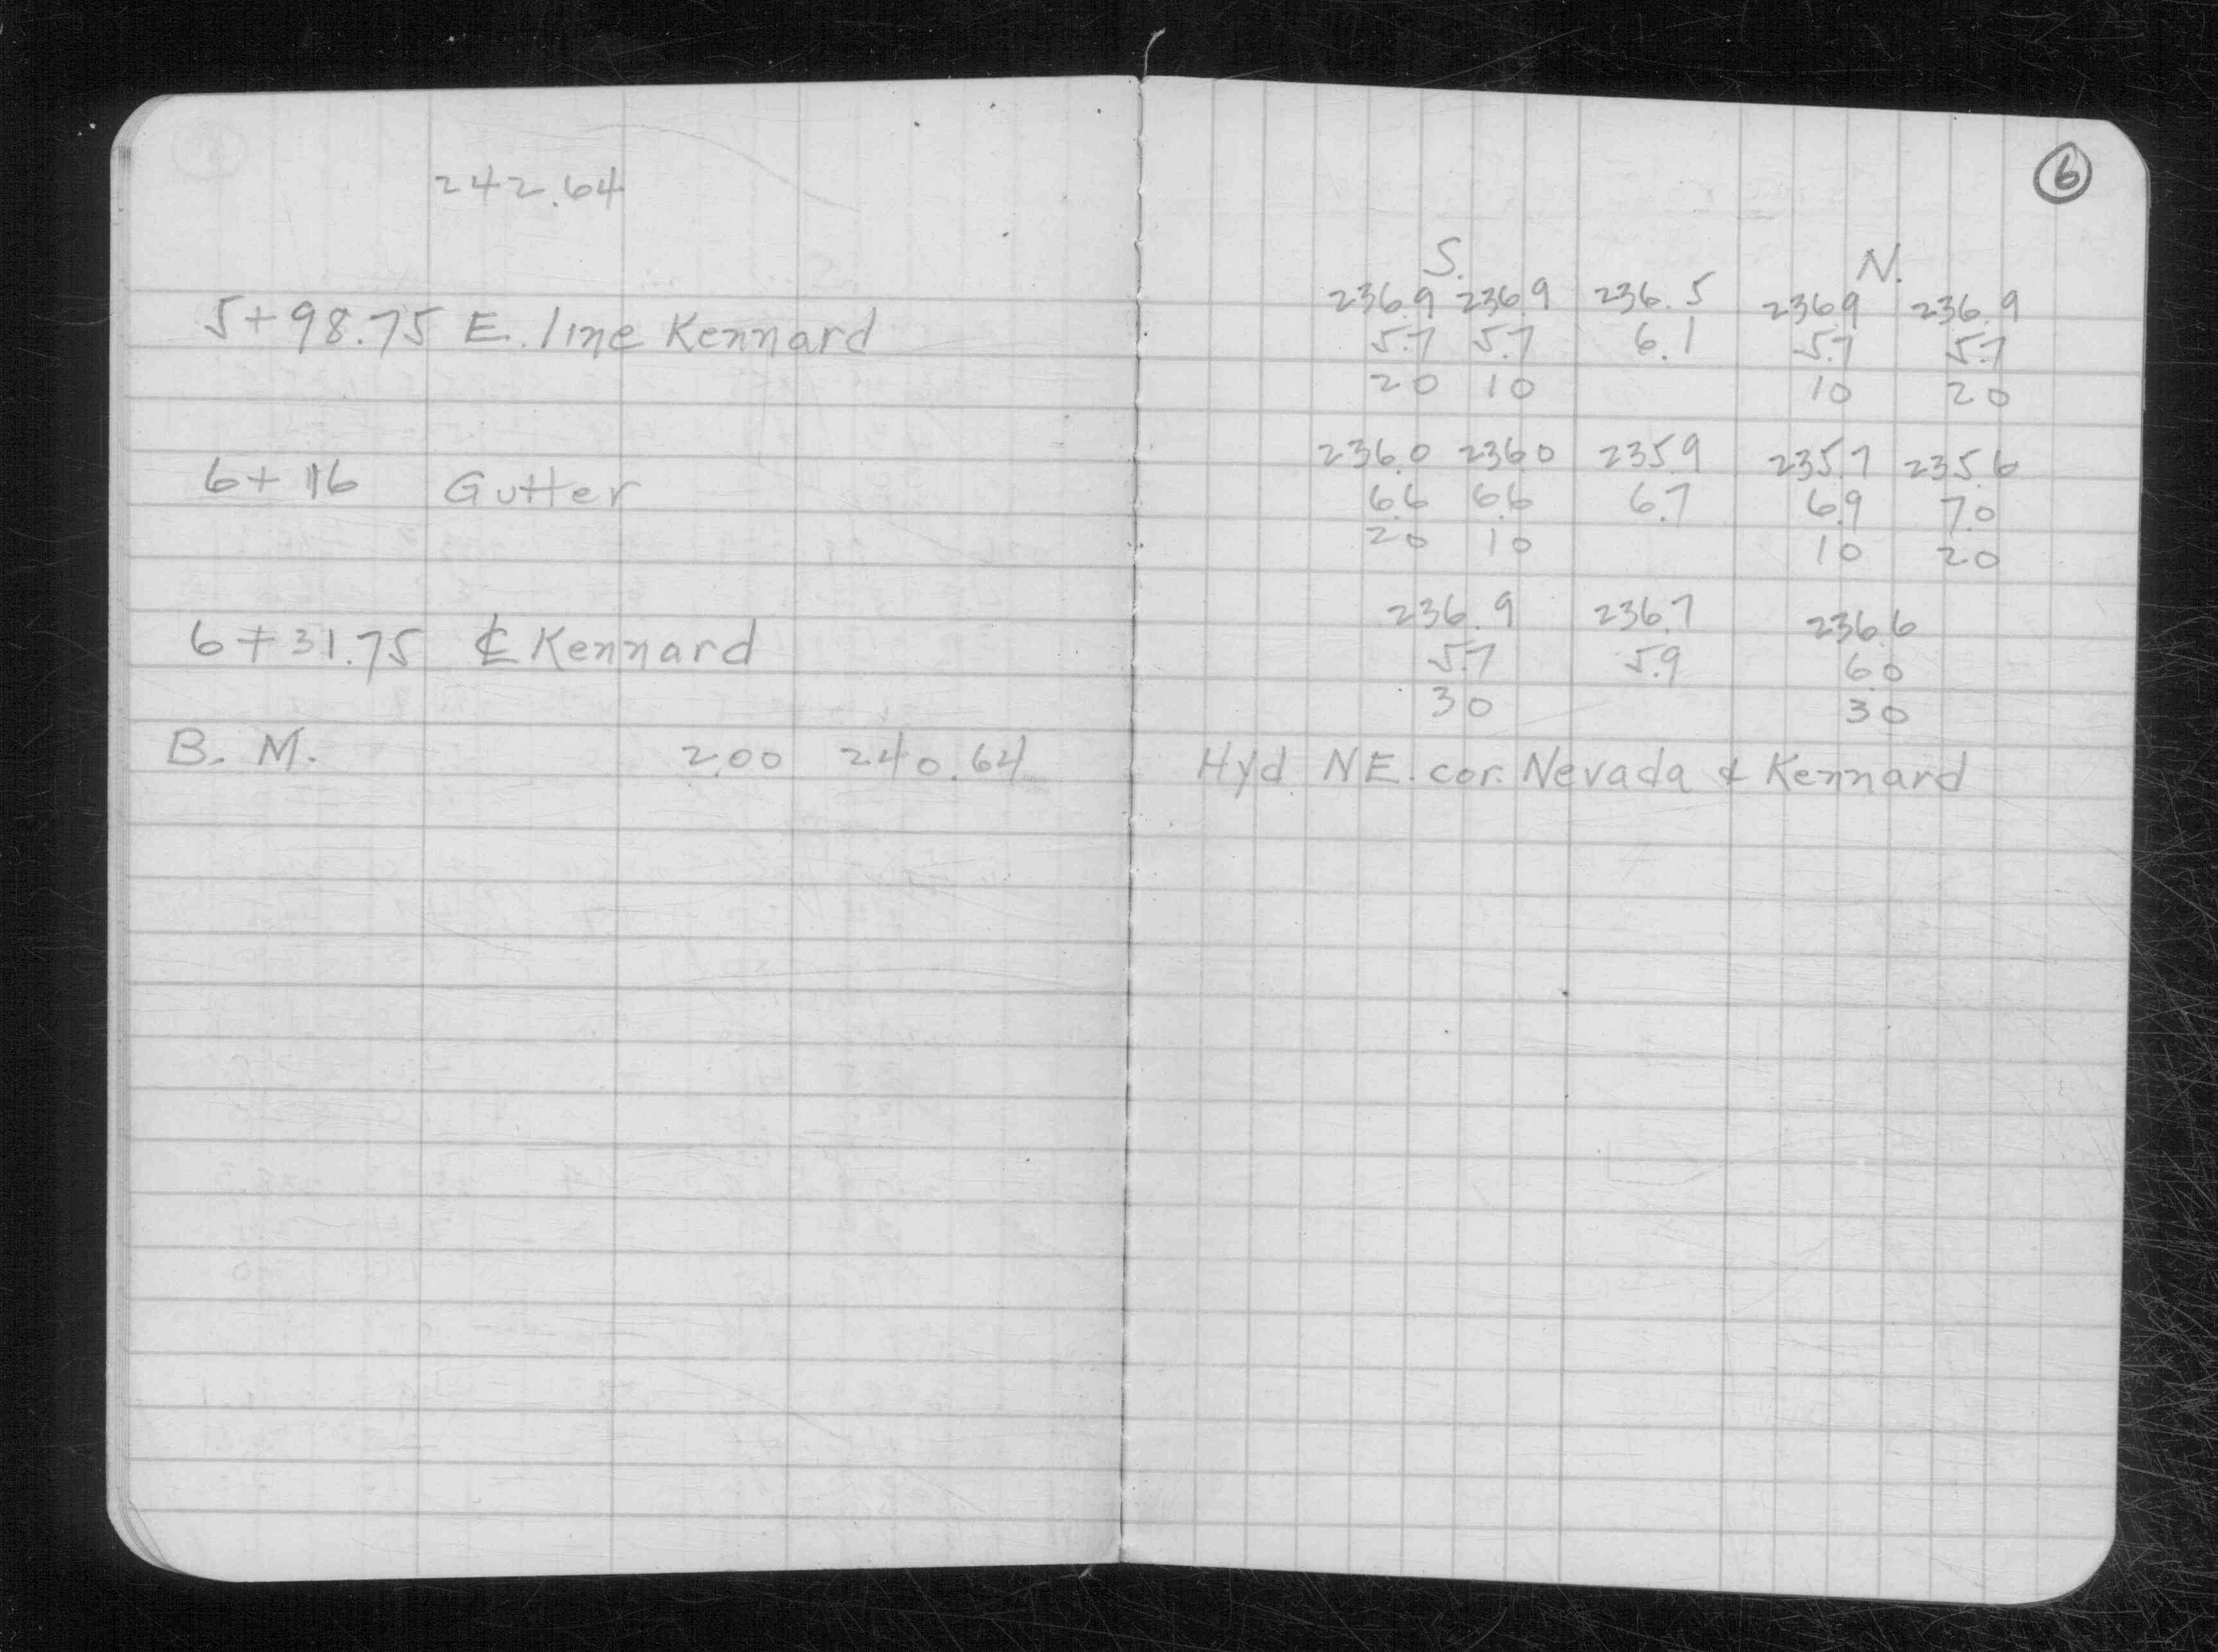 242.64
5+98.75 E. line Kennard
6+16 Gutter
6+31.75 ℄ Kennard
B. M. 2.00 240.64
6
S. N.
236.9 236.9 236.5 236.9 236.9
5.7 5.7 6.1 5.7 5.7
20 10 10 20
236.0 236.0 235.9 235.7 235.6
6.6 6.6 6.7 6.9 7.0
20 10 10 20
236.9 236.7 236.6
5.7 5.9 6.0
30 30
Hyd NE. cor. Nevada & Kennard